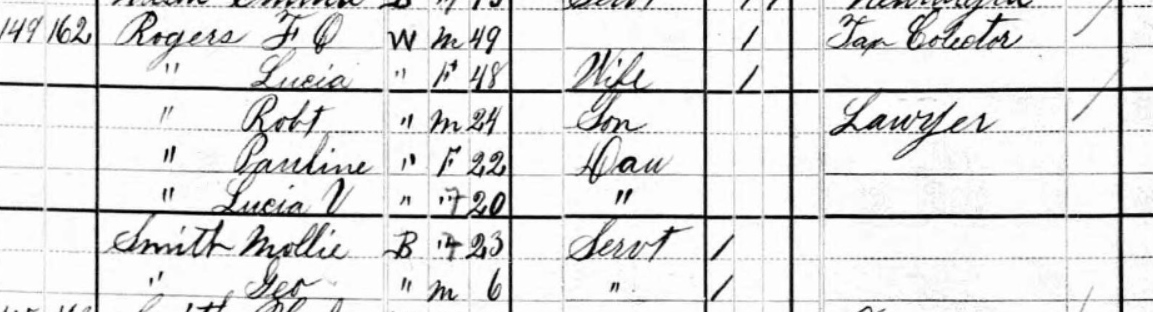 149 162 Rogers F Q W M 49 / Tax Colector
" Lucia " F 48 Wife /
" Robt " M 24 Son Lawyer
" Pauline " F 22 Dau
" Lucia V " F 20 "
Smith Mollie B F 23 Servt /
" Geo " M 6 " /